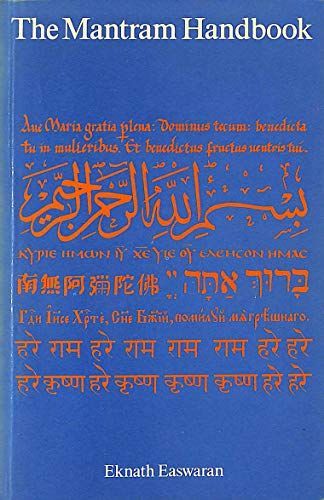 The Mantram Handbook
Ave Maria gratia plena: Dominus tecum: benedicta
tu in mulieribus. Et benedictus fructus ventris tui.
بسم الله الرحمن الرحيم
ΚΥΡΙΕ ΗΜΩΝ ΙΥ ΧΕ ΥΕ ΘΥ ΕΛΕΗСΟΝ ΗΜΑС
南無阿彌陀佛 בָּרוּךְ אַתָּה יְיָ
Гди Іисе Хрте, Сне Бжій, помилуй мя грѣшнаго.
हरे राम हरे राम राम राम हरे हरे
हरे कृष्ण हरे कृष्ण कृष्ण कृष्ण हरे हरे
Eknath Easwaran